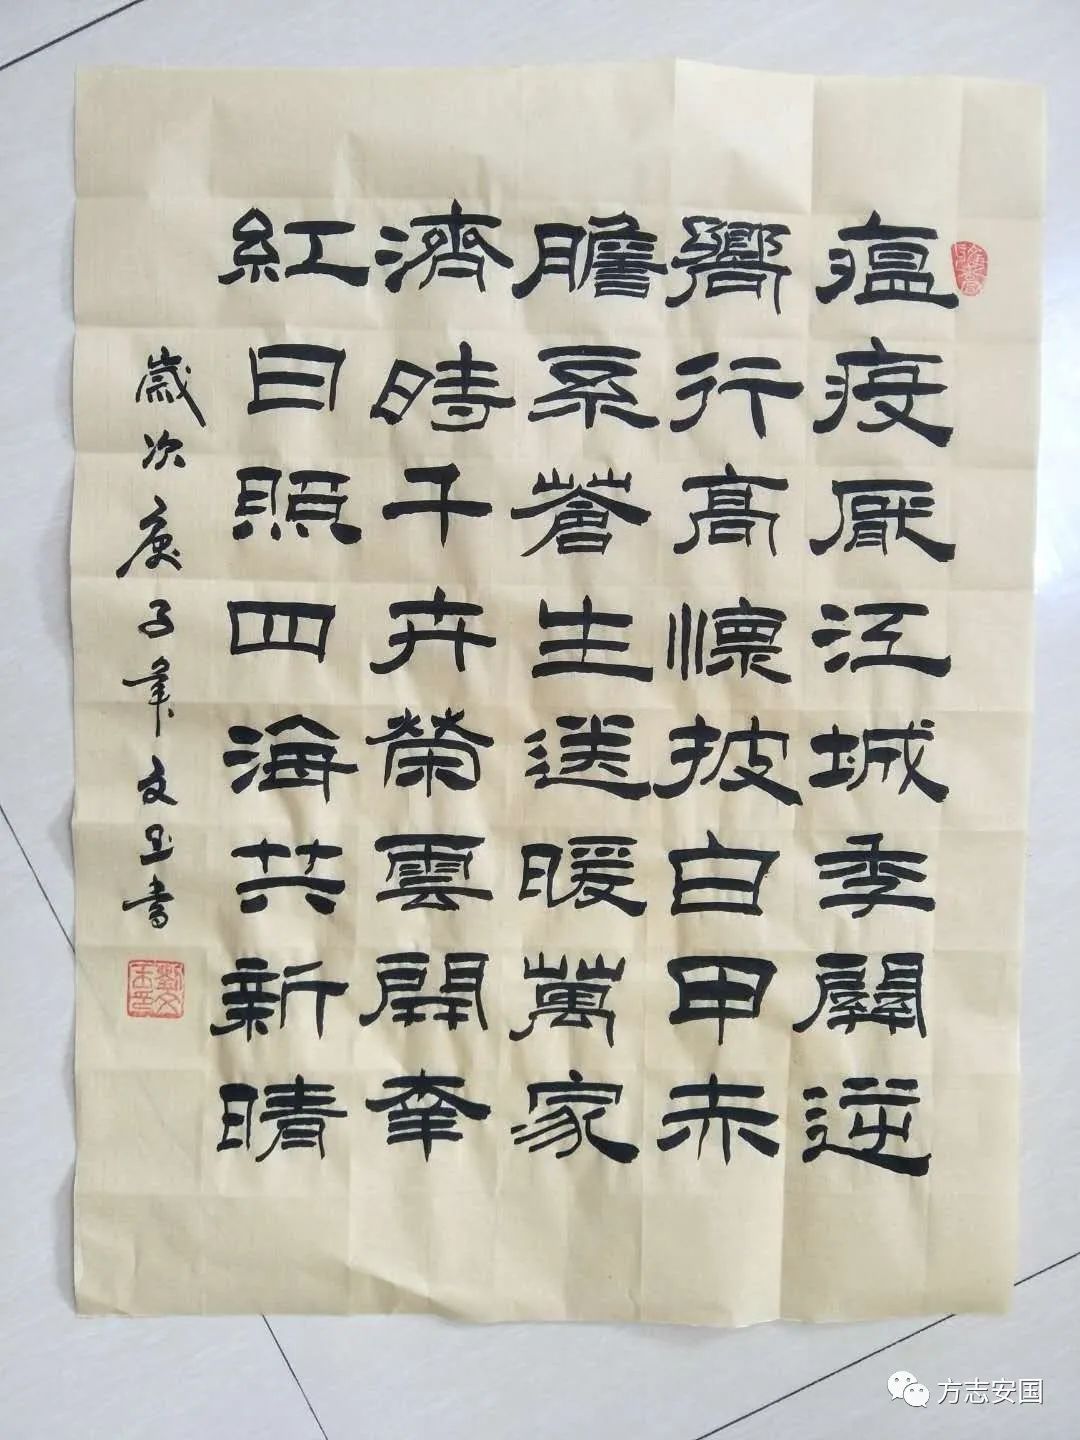 瘟疫厭江城季關逆
嚮行高懷披白甲赤
膽系蒼生送暖萬家
濟時千卉榮雲開幸
紅日照四海共新晴
歲次庚子年文玉書
方志安国